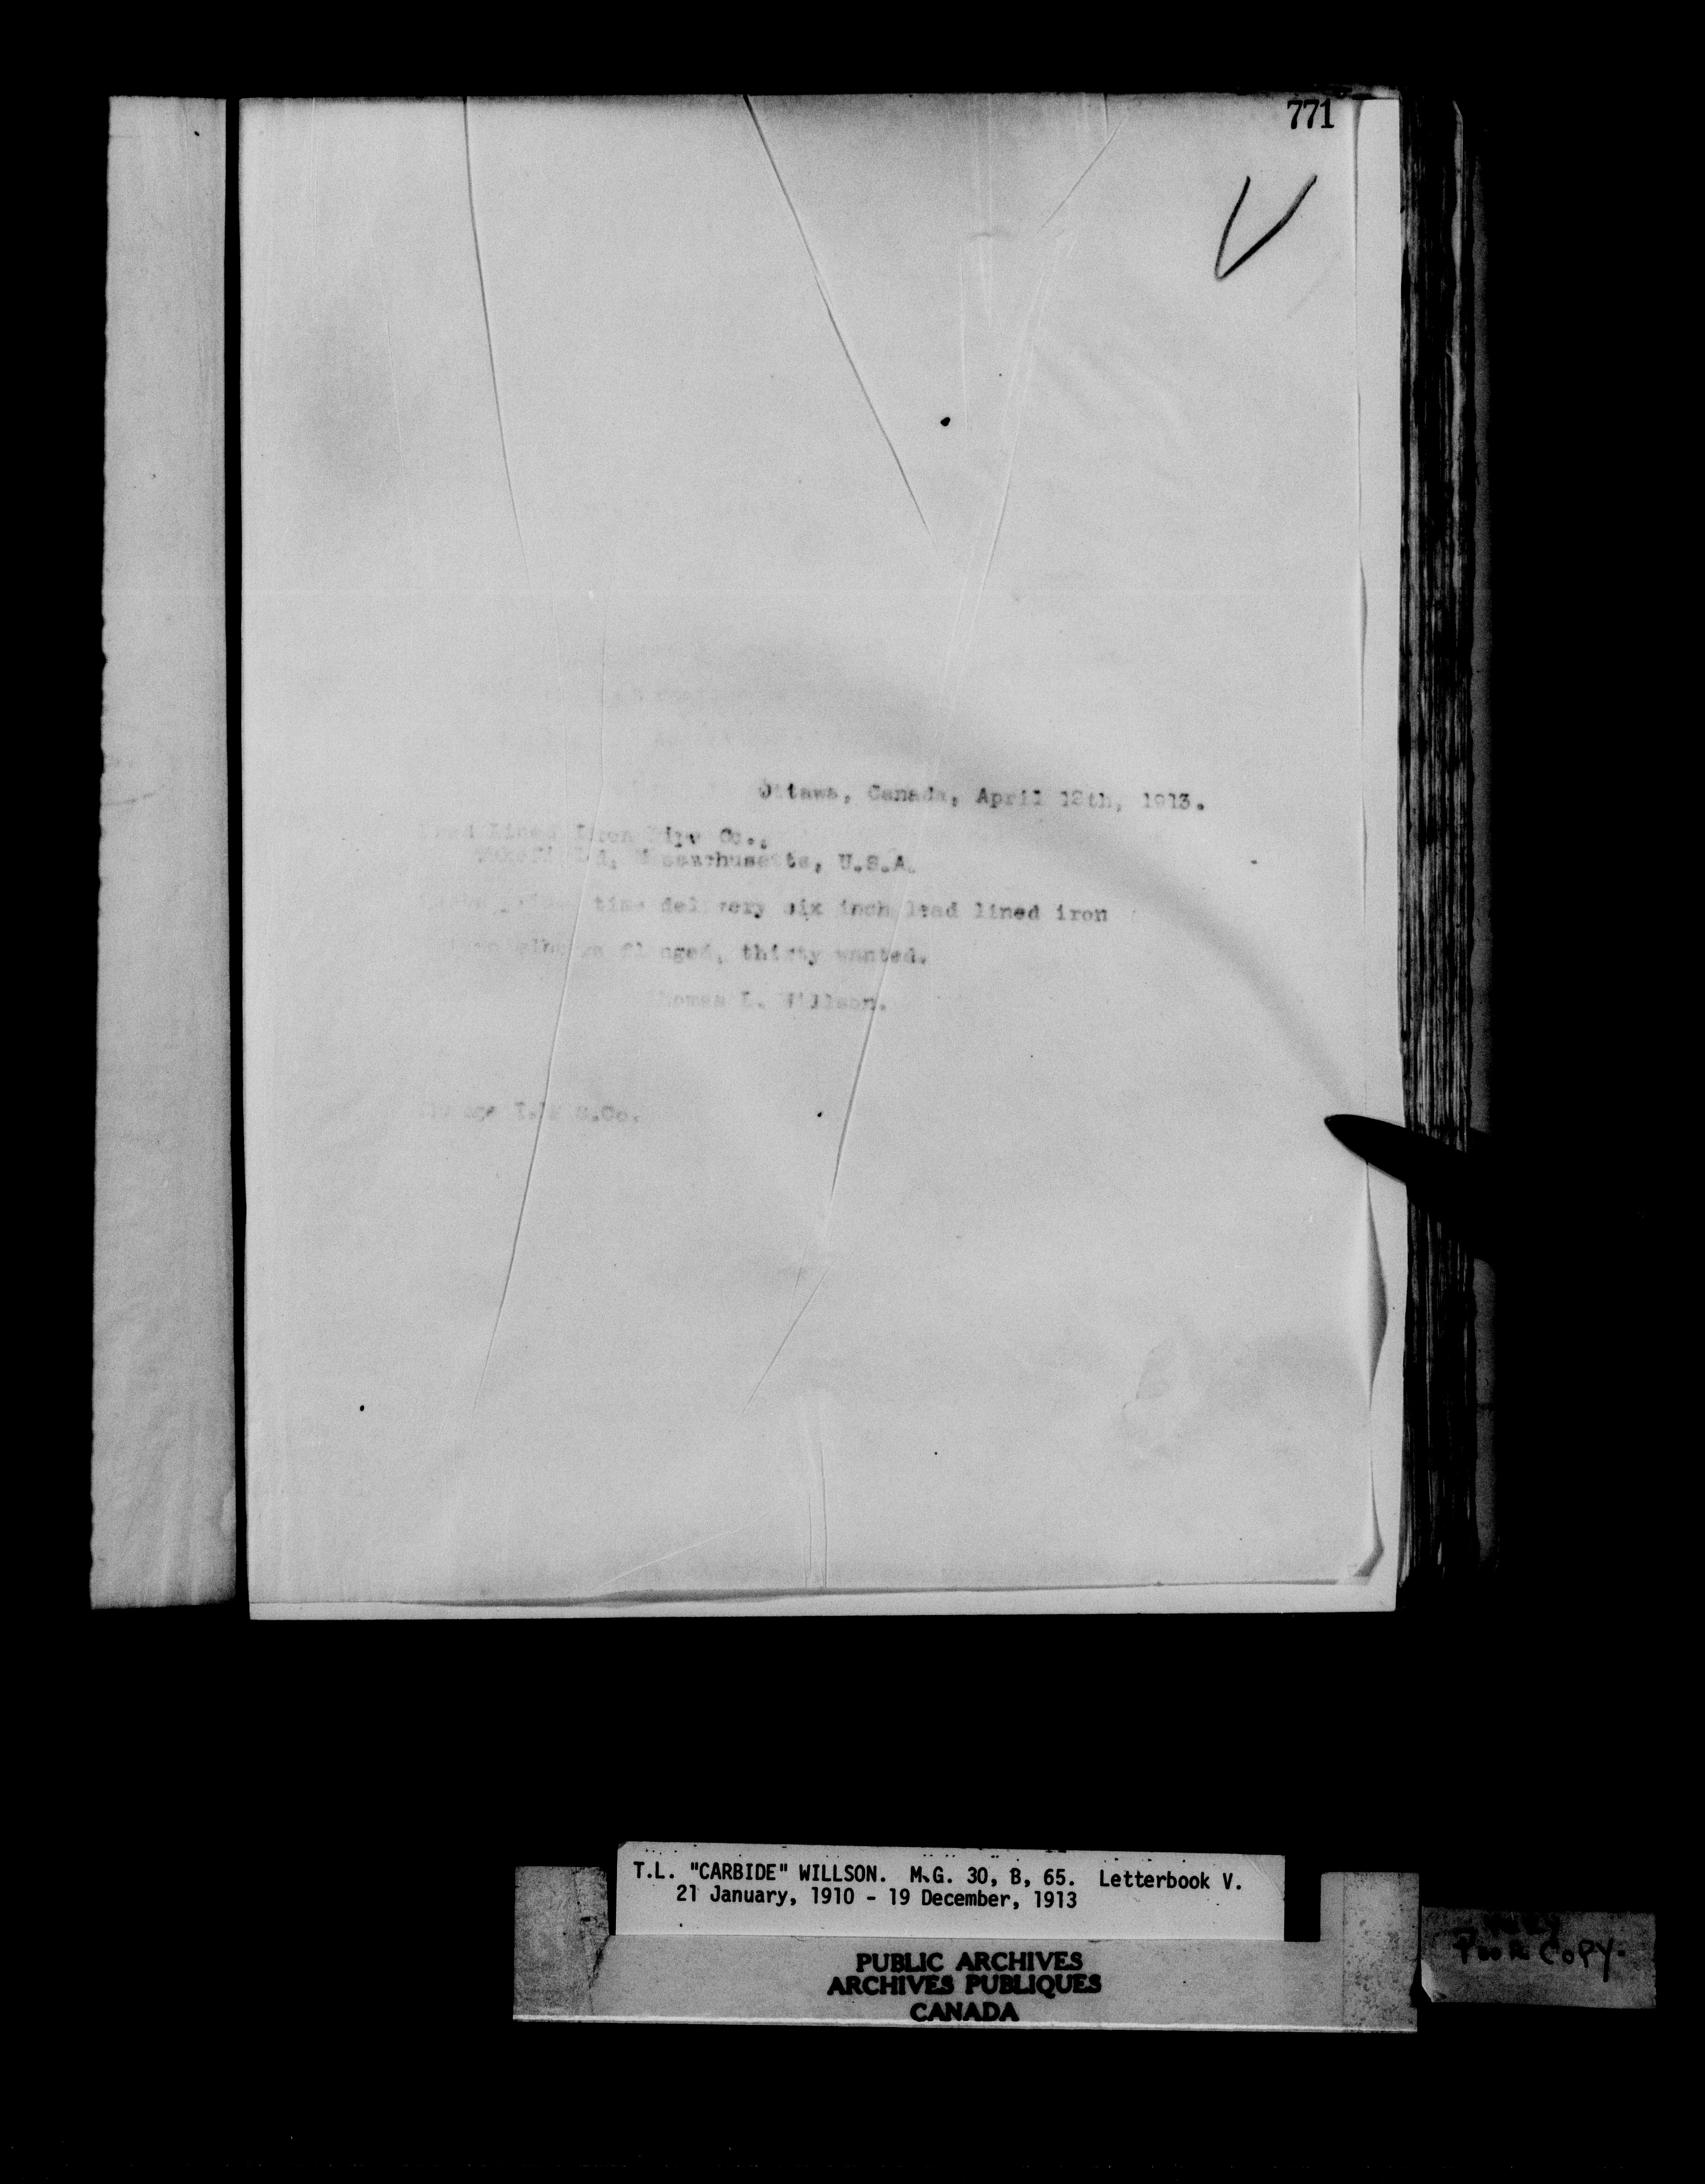 771
Ottawa, Canada, April 12th, 1913.
Lead Lined Iron Pipe Co.,
Wakefield, Massachusetts, U.S.A.
time delivery six inch lead lined iron
elbows flanged, thirty wanted.
Thomas L. Willson.
Charge I. S.Co.
T.L. "CARBIDE" WILLSON. M.G. 30, B, 65. Letterbook V.
21 January, 1910 - 19 December, 1913
PUBLIC ARCHIVES
ARCHIVES PUBLIQUES
CANADA
VERY
POOR COPY.